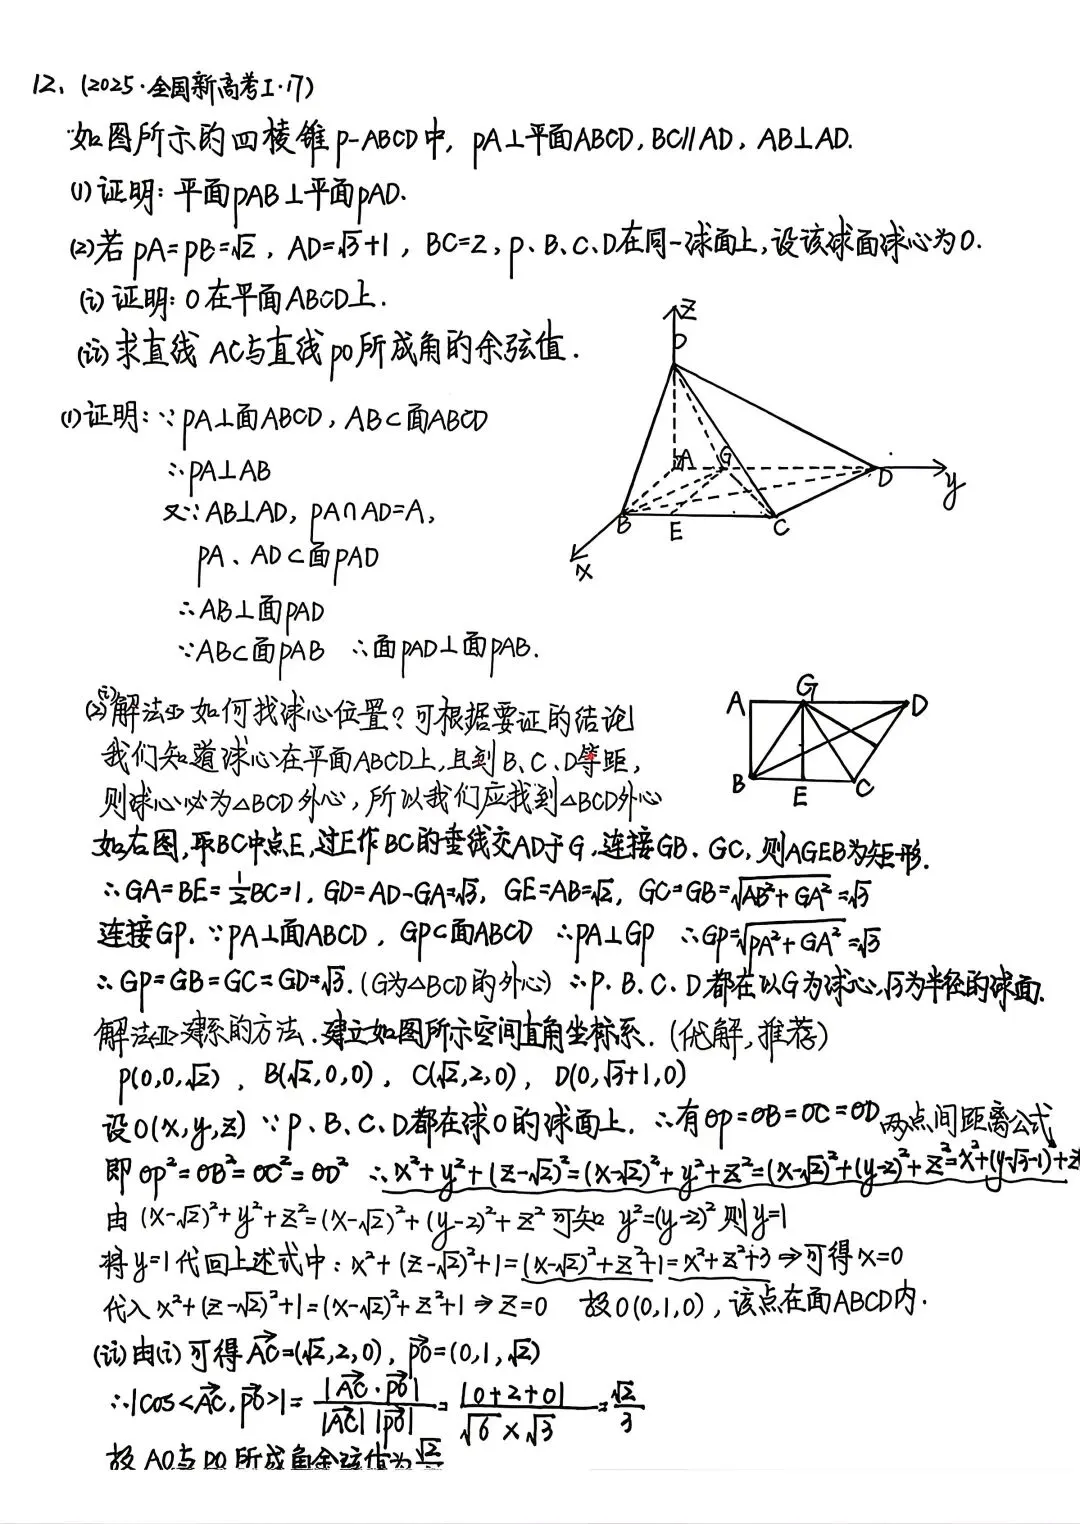 12、(2025·全国新高考I·17)
如图所示的四棱锥P-ABCD中, PA⊥平面ABCD, BC∥AD, AB⊥AD.
(1)证明:平面PAB⊥平面PAD.
(2)若PA=PB=√2, AD=√3+1, BC=2, P、B、C、D在同一球面上,设该球面球心为O.
(i)证明:O在平面ABCD上.
(ii)求直线AC与直线PO所成角的余弦值.
Z
P
A
G
D
y
B
E
C
x
(1)证明:∵PA⊥面ABCD, AB⊂面ABCD
∴PA⊥AB
又∵AB⊥AD, PA∩AD=A,
PA、AD⊂面PAD
∴AB⊥面PAD
∵AB⊂面PAB ∴面PAD⊥面PAB.
A G D
B E C
(2)(i)解法<I>如何找球心位置?可根据要证的结论
我们知道球心在平面ABCD上,且到B、C、D等距,
则球心必为△BCD外心,所以我们应找到△BCD外心
如右图,取BC中点E,过E作BC的垂线交AD于G,连接GB、GC,则AGEB为矩形.
∴GA=BE=1/2BC=1, GD=AD-GA=√3, GE=AB=√2, GC=GB=√(AB²+GA²)=√3
连接GP. ∵PA⊥面ABCD, GP⊂面ABCD ∴PA⊥GP ∴GP=√(PA²+GA²)=√3
∴GP=GB=GC=GD=√3.(G为△BCD的外心) ∴P、B、C、D都在以G为球心,√3为半径的球面.
解法<II>建系的方法.建立如图所示空间直角坐标系.(优解,推荐)
P(0,0,√2), B(√2,0,0), C(√2,2,0), D(0,√3+1,0)
设O(x,y,z) ∵P、B、C、D都在球O的球面上. ∴有OP=OB=OC=OD 两点间距离公式
即OP²=OB²=OC²=OD² ∴x²+y²+(z-√2)²=(x-√2)²+y²+z²=(x-√2)²+(y-2)²+z²=x²+(y-√3-1)²+z
由(x-√2)²+y²+z²=(x-√2)²+(y-2)²+z²可知y²=(y-2)²则y=1
将y=1代回上述式中:x²+(z-√2)²+1=(x-√2)²+z²+1=x²+z²+3⇒可得x=0
代入x²+(z-√2)²+1=(x-√2)²+z²+1⇒z=0 故O(0,1,0),该点在面ABCD内.
(ii)由(i)可得AC=(√2,2,0), PO=(0,1,√2)
∴|cos<AC,PO>|=|AC·PO|/|AC||PO|=|0+2+0|/√6×√3=√2/3
故AO与PO所成角余弦值为√2